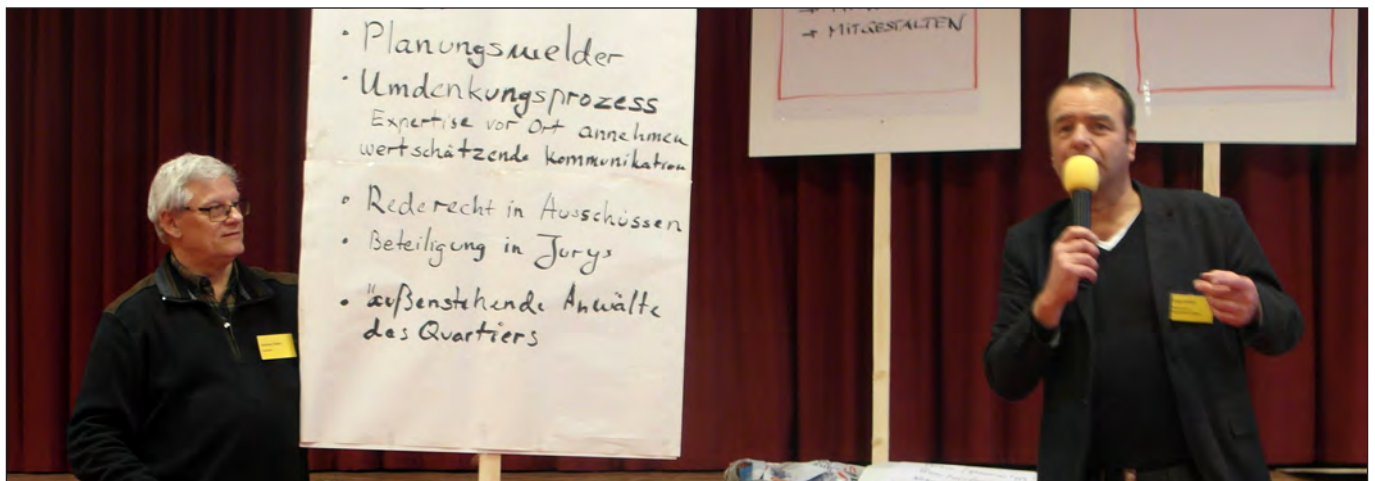 • Planungsmelder
• Umdenkungsprozess
Expertise vor Ort annehmen
wertschätzende Kommunikation
• Rederecht in Ausschüssen
• Beteiligung in Jurys
• "außenstehende Anwälte
des Quartiers
→ MITGESTALTEN